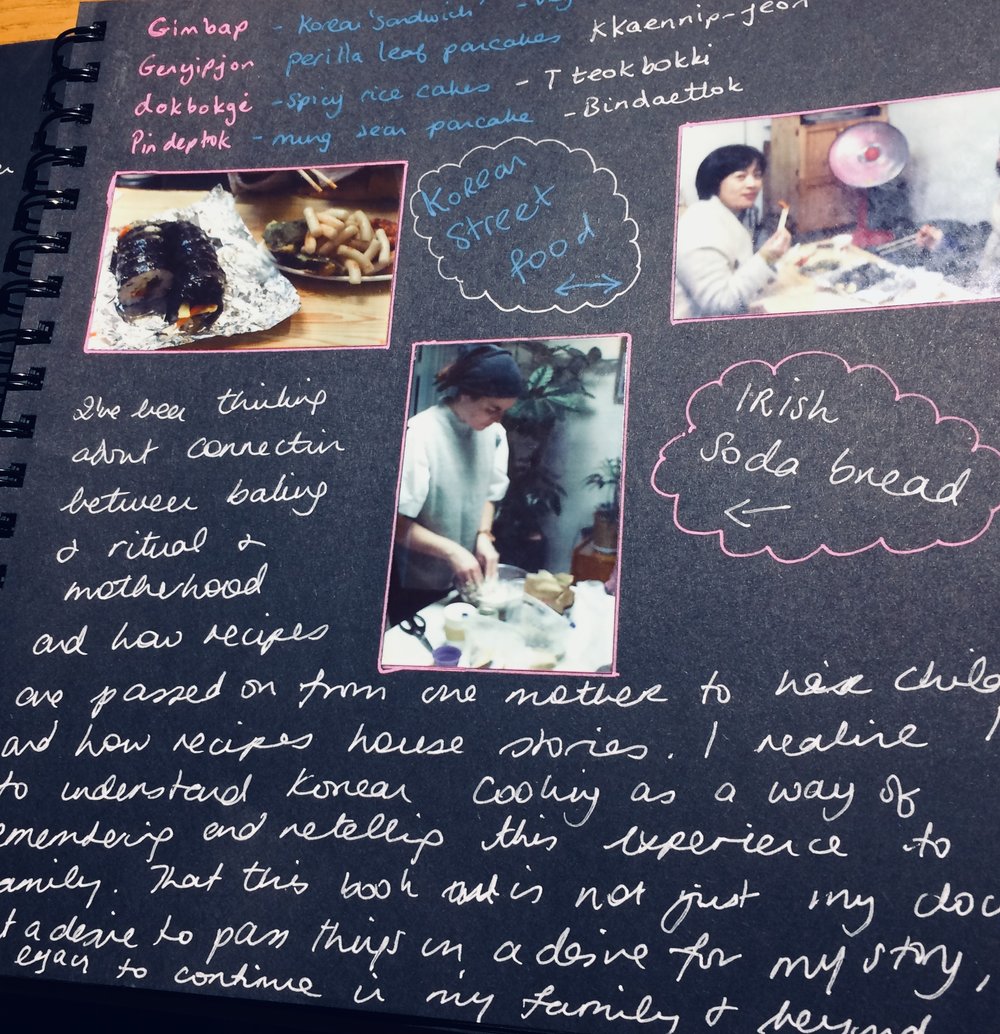 Gimbap - Korean 'sandwich' -
Genyipjon perilla leaf pancakes kkaennip-jeon
dokbokgé - spicy rice cakes - Tteokbokki
Pindeptok - mung bean pancake - Bindaettok
Korean
street
food
I've been thinking
about connection
between baking
& ritual &
motherhood
and how recipes
are passed on from one mother to her child
and how recipes house stories. I realise I
to understand Korean cooking as a way of
emembering and retelling this experience to
amily. That this book is not just my docu
t a desire to pass things on a desire for my story,
to continue in my family & beyond
IRish
Soda bread